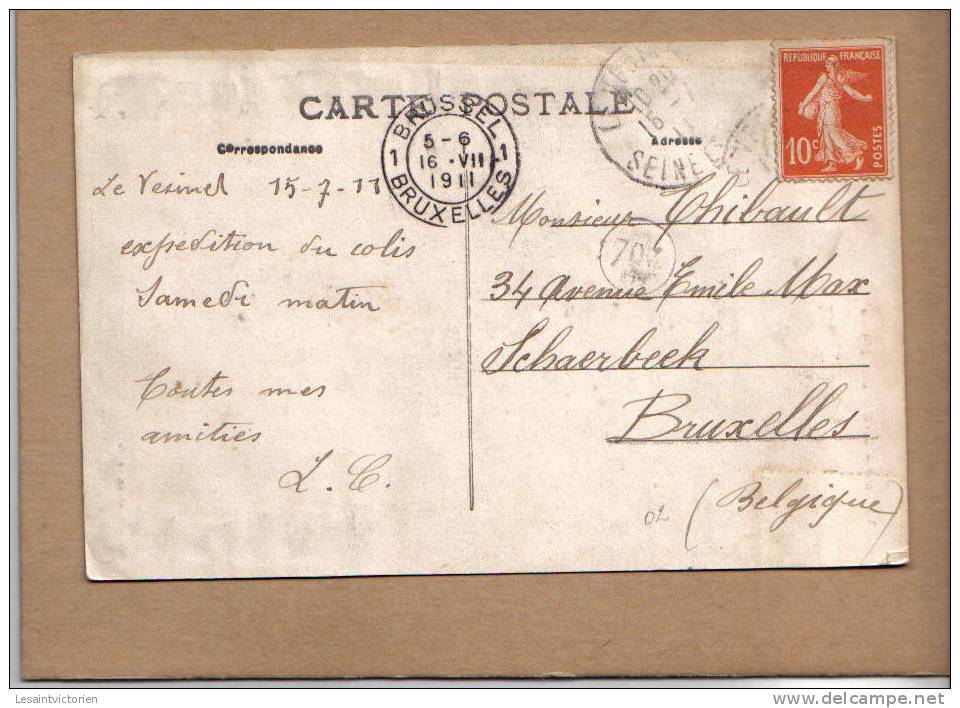 CARTE POSTALE
Correspondance
Adresse
REPUBLIQUE FRANÇAISE
10c
POSTES
SEINE
BRUSSEL
1 5-6 1
16 ·VII
1911
BRUXELLES
Le Vesinet 15-7-11
expédition du colis
Samedi matin
Toutes mes
amitiés
L. C.
Monsieur Thibault
34 Avenue Emile Max
Schaerbeek
Bruxelles
(Belgique)
02
Lesaintvictorien
www.delcampe.net